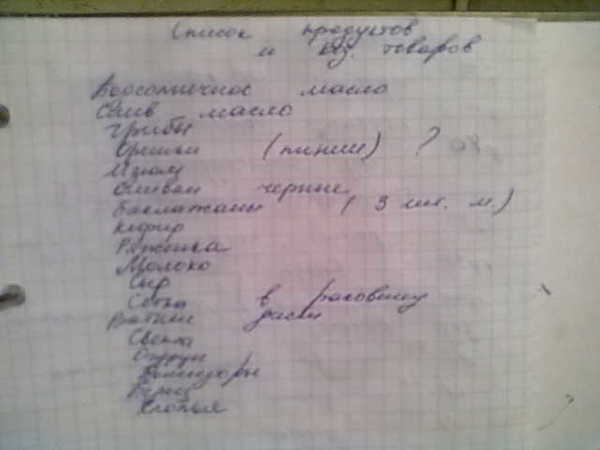 Список продуктов
и хоз. товаров
Подсолнечное масло
Слив масло
Грибы
Орешки (пинии) ?
Изюм
Оливки черные
Баклажаны (3 шт. м.)
Кефир
Ряженка
Молоко
Сыр
Сетка в раковину
Ватные диски
Свекла
Огурцы
Помидоры
Перец
Хлопья